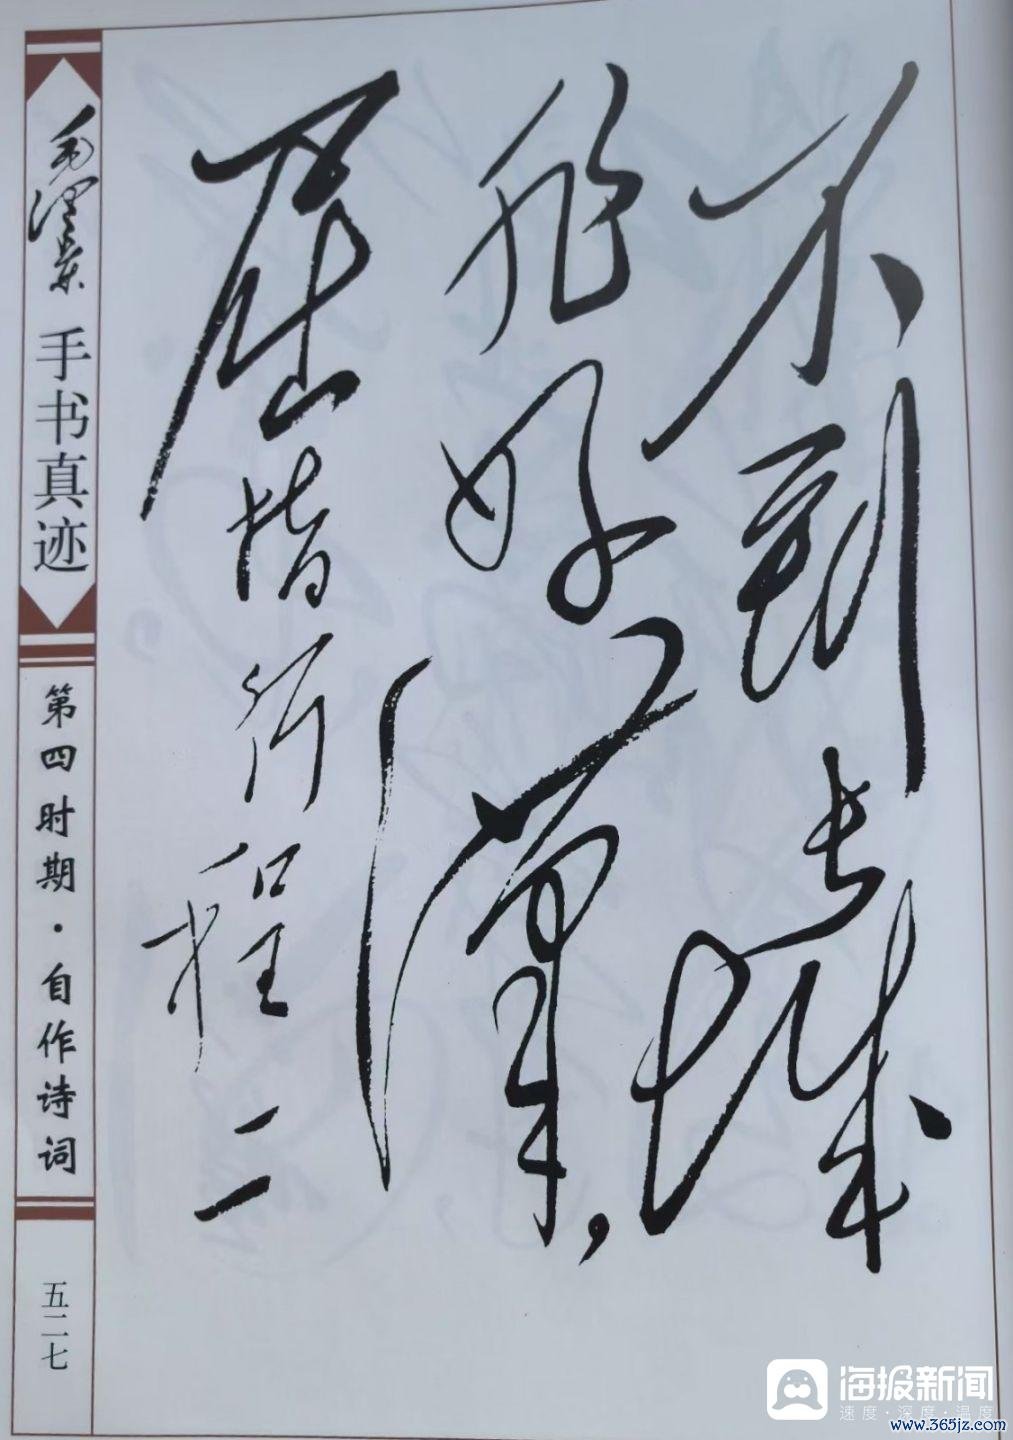 不到长城
非好汉，
屈指行程二
毛泽东
手书真迹
第四时期·自作诗词
五二七
海报新闻
速度·深度·温度
www.365jz.com